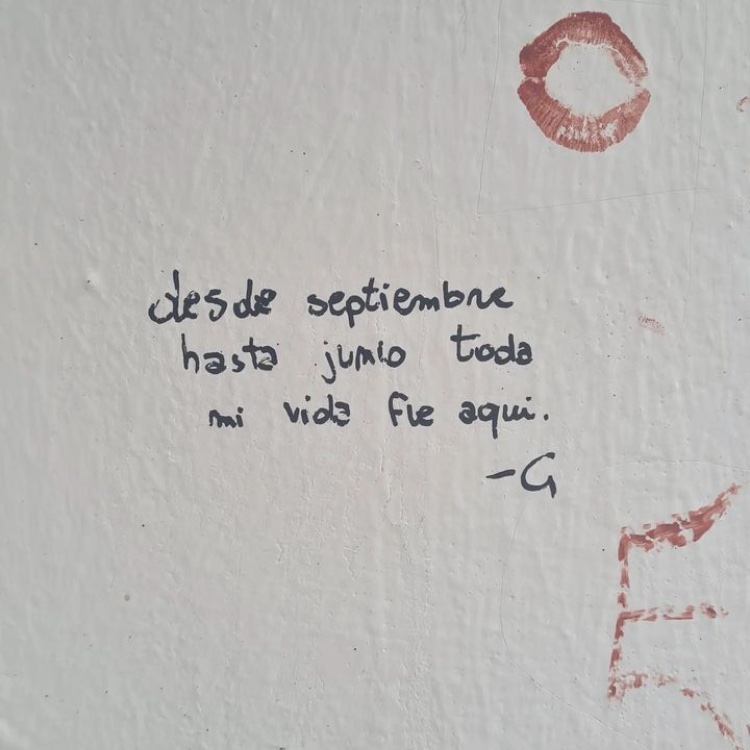 desde septiembre
hasta junio toda
mi vida fue aqui.
-G